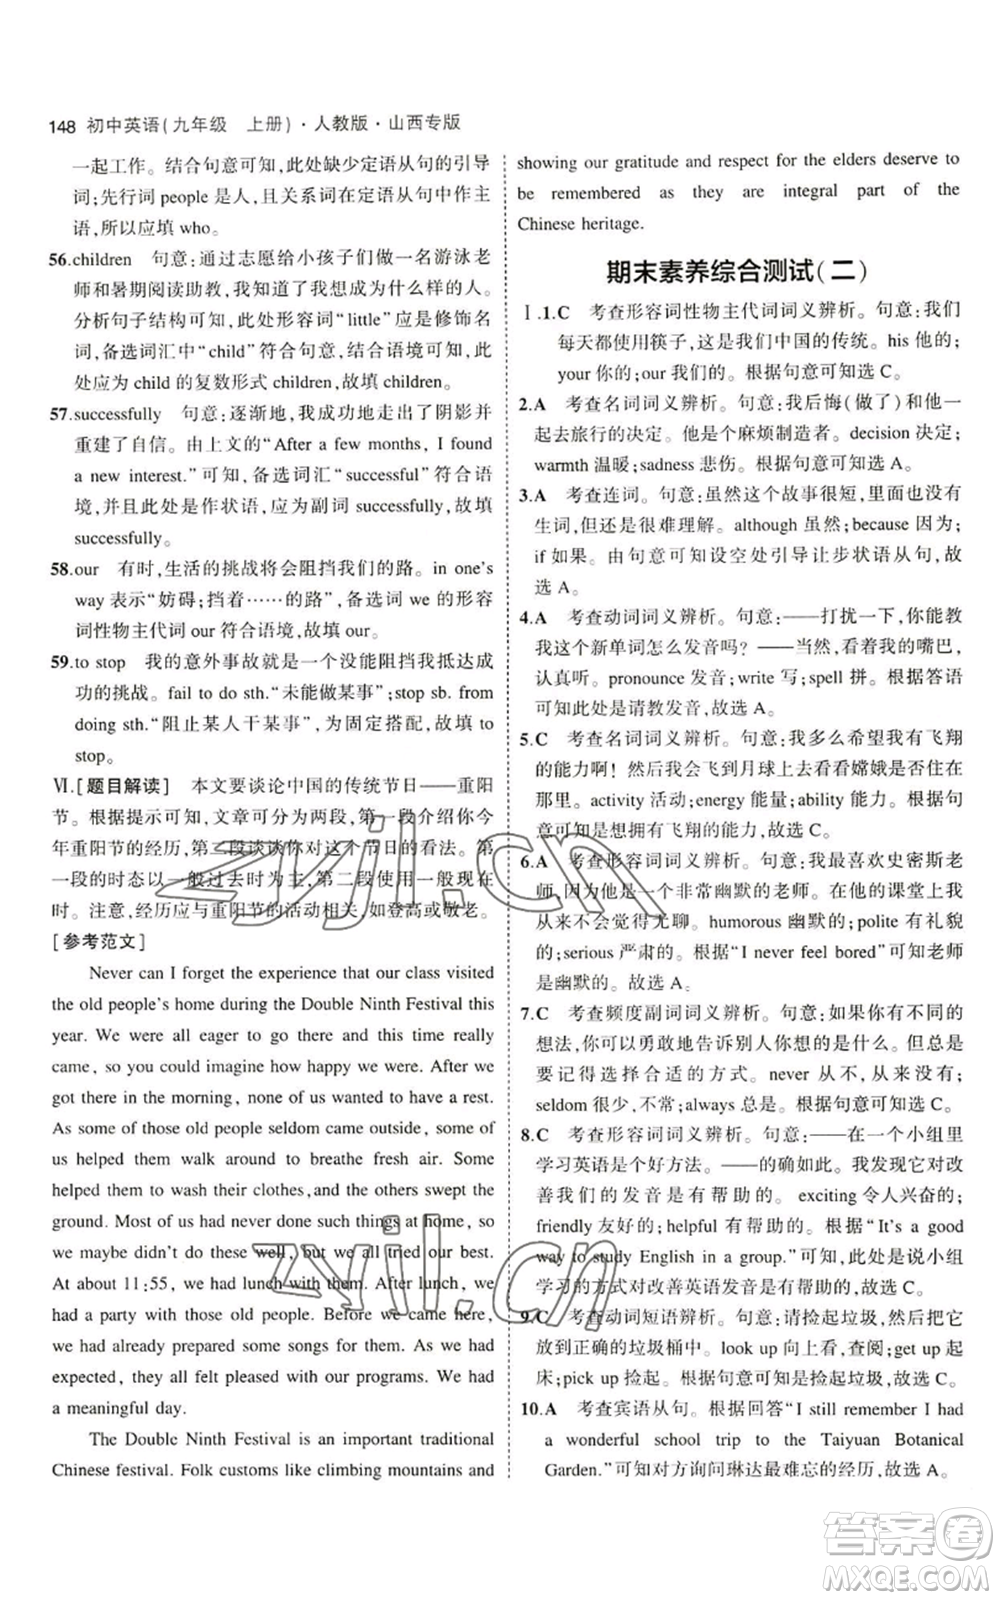 148 初中英语(九年级　上册)·人教版·山西专版
一起工作。结合句意可知,此处缺少定语从句的引导
词;先行词 people 是人,且关系词在定语从句中作主
语,所以应填 who。
56.children　句意:通过志愿给小孩子们做一名游泳老
师和暑期阅读助教,我学到了为什么成为什么样的人。
分析句子结构可知,此处形容词“little”应是修饰名
词,备选词汇中“child”符合句意,结合语境可知,此
处应为 child 的复数形式 children,故填 children。
57.successfully　句意:逐渐地,我成功地走出了阴影并
重建了自信。由上文的“After a few months, I found
a new interest.”可知,备选词汇“successful”符合语
境,并且此处是作状语,应为副词 successfully,故填
successfully。
58.our　有时,生活的挑战将会阻挡我们的路。in one's
way 表示“妨碍;挡着……的路”,备选词 we 的形容
词性物主代词 our 符合语境,故填 our。
59.to stop　我的意外事故就是一个没能阻挡我抵达成
功的挑战。fail to do sth.“未能做某事”;stop sb. from
doing sth.“阻止某人干某事”,为固定搭配,故填 to
stop。
Ⅵ.[题目解读]　本文要谈论中国的传统节日——重阳
节。根据提示可知,文章可分为两段,第一段介绍你今
年重阳节的经历,第二段谈谈你对这个节日的看法。第
一段的时态以一般过去时为主,第二段使用一般现在
时。注意,经历应与重阳节的活动相关,如登高或敬老。
[参考范文]
Never can I forget the experience that our class visited
the old people's home during the Double Ninth Festival this
year. We were all eager to go there and this time really
came, so you could imagine how happy we were. After we
got there in the morning, none of us wanted to have a rest.
As some of those old people seldom came outside, some of
us helped them walk around to breathe fresh air. Some
helped them to wash their clothes, and the others swept the
ground. Most of us had never done such things at home, so
we maybe didn't do these well, but we all tried our best.
At about 11:55, we had lunch with them. After lunch, we
had a party with those old people. Before we came here,
we had already prepared some songs for them. As we had
expected, they all felt pleased with our programs. We had
a meaningful day.
The Double Ninth Festival is an important traditional
Chinese festival. Folk customs like climbing mountains and
showing our gratitude and respect for the elders deserve to
be remembered as they are integral part of the
Chinese heritage.
期末素养综合测试(二)
Ⅰ.1.C　考查形容词性物主代词词义辨析。句意:我们
每天都使用筷子,这是我们中国的传统。his 他的;
your 你的;our 我们的。根据句意可知选 C。
2.A　考查名词词义辨析。句意:我后悔(做了)和他一
起去旅行的决定。他是个麻烦制造者。decision 决定;
warmth 温暖;sadness 悲伤。根据句意可知选 A。
3.A　考查连词。句意:虽然这个故事很短,里面也没有
生词,但还是很难理解。although 虽然;because 因为;
if 如果。由句意可知设空处引导让步状语从句,故
选 A。
4.A　考查动词词义辨析。句意:——打扰一下,你能教
我这个新单词怎么发音吗? ——当然,看着我的嘴巴,
认真听。pronounce 发音;write 写;spell 拼。根据答语
可知此处是请教发音,故选 A。
5.C　考查名词词义辨析。句意:我多么希望我有飞翔
的能力啊! 我会飞到月球上去看看嫦娥是否住在
那里。activity 活动;energy 能量;ability 能力。根据句
意可知想拥有飞翔的能力,故选 C。
6.A　考查形容词词义辨析。句意:我最喜欢史密斯老
师。他是一个非常幽默的老师。在他的课堂上我
从来不会觉得无聊。humorous 幽默的;polite 有礼貌
的;serious 严肃的。根据“I never feel bored”可知老师
是幽默的。故选 A。
7.C　考查频度副词词义辨析。句意:如果你有不同的
想法,你可以勇敢地告诉别人你想的是什么。但是要
记得选择合适的方式。never 从不,从来没有;
seldom 很少,不常;always 总是。根据句意可知选 C。
8.C　考查形容词词义辨析。句意:——在一个小组里
学习英语是个好方法。——的确如此。我发现它对改
善我们的发音是有帮助的。exciting 令人兴奋的;
friendly 友好的;helpful 有帮助的。根据“It's a good
way to study English in a group.”可知,此处是说小组
学习的方式对改善英语发音是有帮助的,故选 C。
9.C　考查动词短语辨析。句意:请捡起垃圾,然后把它
放到正确的垃圾桶中。look up 向上看,查阅;get up 起
床;pick up 捡起。根据句意可知是捡起垃圾,故选 C。
10.A　考查宾语从句。根据回答“I still remember I had
a wonderful school trip to the Taiyuan Botanical
Garden.”可知对方询问琳达最难忘的经历,故选 A。
zyjl.cn
zyjl.cn
答案圈
MXQE.COM